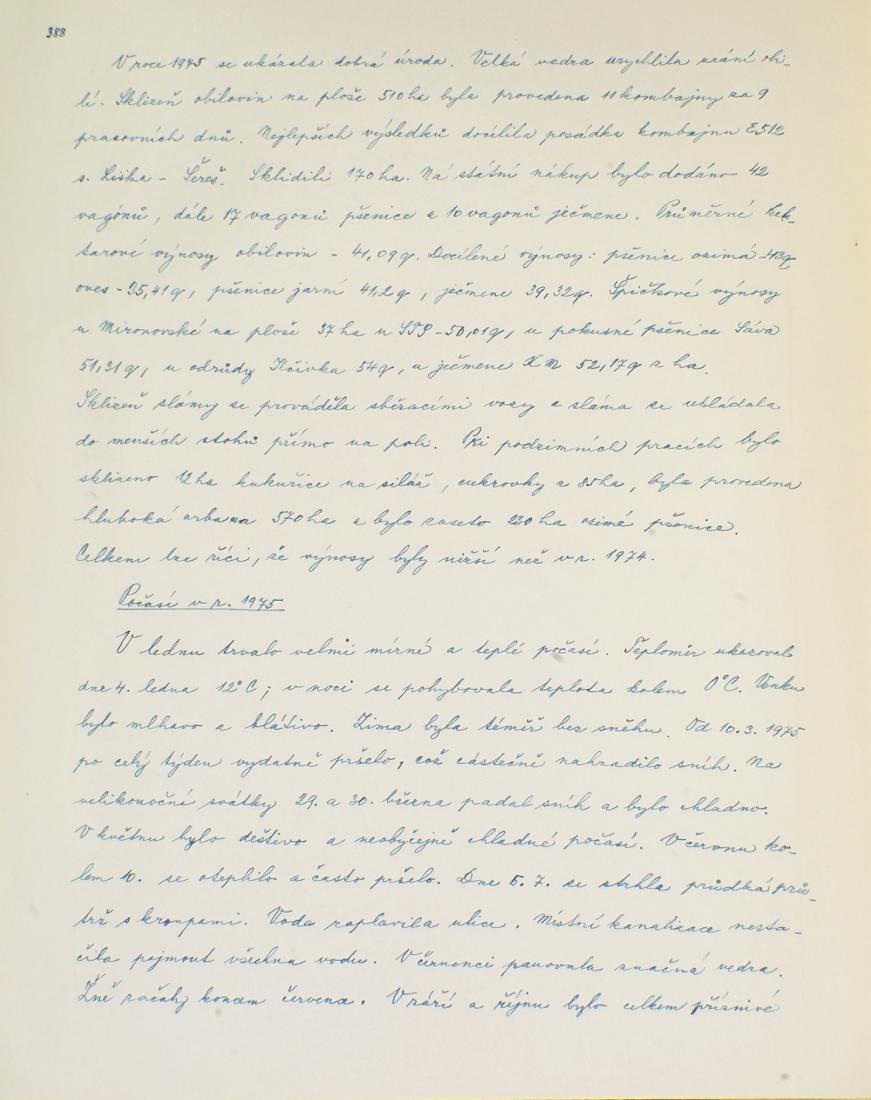 388
V roce 1975 se ukázala dobrá úroda. Velká vedra urychlila zrání obi-
lí. Sklizeň obilovin na ploše 510 ha byla provedena 11 kombajny za 9
pracovních dnů. Nejlepších výsledků docílila posádka kombajnu E 512
s. Liška - Šereš. Sklidili 170 ha. Na státní nákup bylo dodáno 42
vagónů, dále 17 vagonů pšenice a 10 vagonů ječmene. Průměrné hek-
tarové výnosy obilovin - 41,09 q. Docílené výnosy: pšenice ozimá - 43 q
oves - 35,41 q, pšenice jarní 41,2 q, ječmene 39,32 q. Špičkové výnosy
u Mironovské na ploše 37 ha u - 50,01 q, u pokusné pšenice Sáva
51,31 q, u odrůdy 54 q, u ječmene 52,17 q z ha.
Sklizeň slámy se prováděla sběracími vozy a sláma se ukládala
do menších stohů přímo na poli. Při podzimních pracích bylo
sklizeno 12 ha kukuřice na siláž, cukrovky z 85 ha, byla provedena
hluboká orba na 570 ha a bylo zaseto 230 ha ozimé pšenice.
Celkem lze říci, že výnosy byly nižší než v r. 1974.
Počasí v r. 1975
V lednu trvalo velmi mírné a teplé počasí. Teploměr ukazoval
dne 4. ledna 12°C; v noci se pohybovala teplota kolem 0°C. Venku
bylo mlhavo a blátivo. Zima byla téměř bez sněhu. Od 10.3. 1975
po celý týden vydatně pršelo, což částečně nahradilo sníh. Na
velikonoční svátky 29. a 30. března padal sníh a bylo chladno.
V květnu bylo deštivo a neobyčejně chladné počasí. V červnu ko-
lem 10. se oteplilo a často pršelo. Dne 5. 7. se strhla prudká prů-
trž s kroupami. Voda zaplavila ulice. Místní kanalizace nesta-
čila pojmout všechnu vodu. V červenci panovala značná vedra.
Žně začaly koncem června. V září a říjnu bylo celkem příznivé